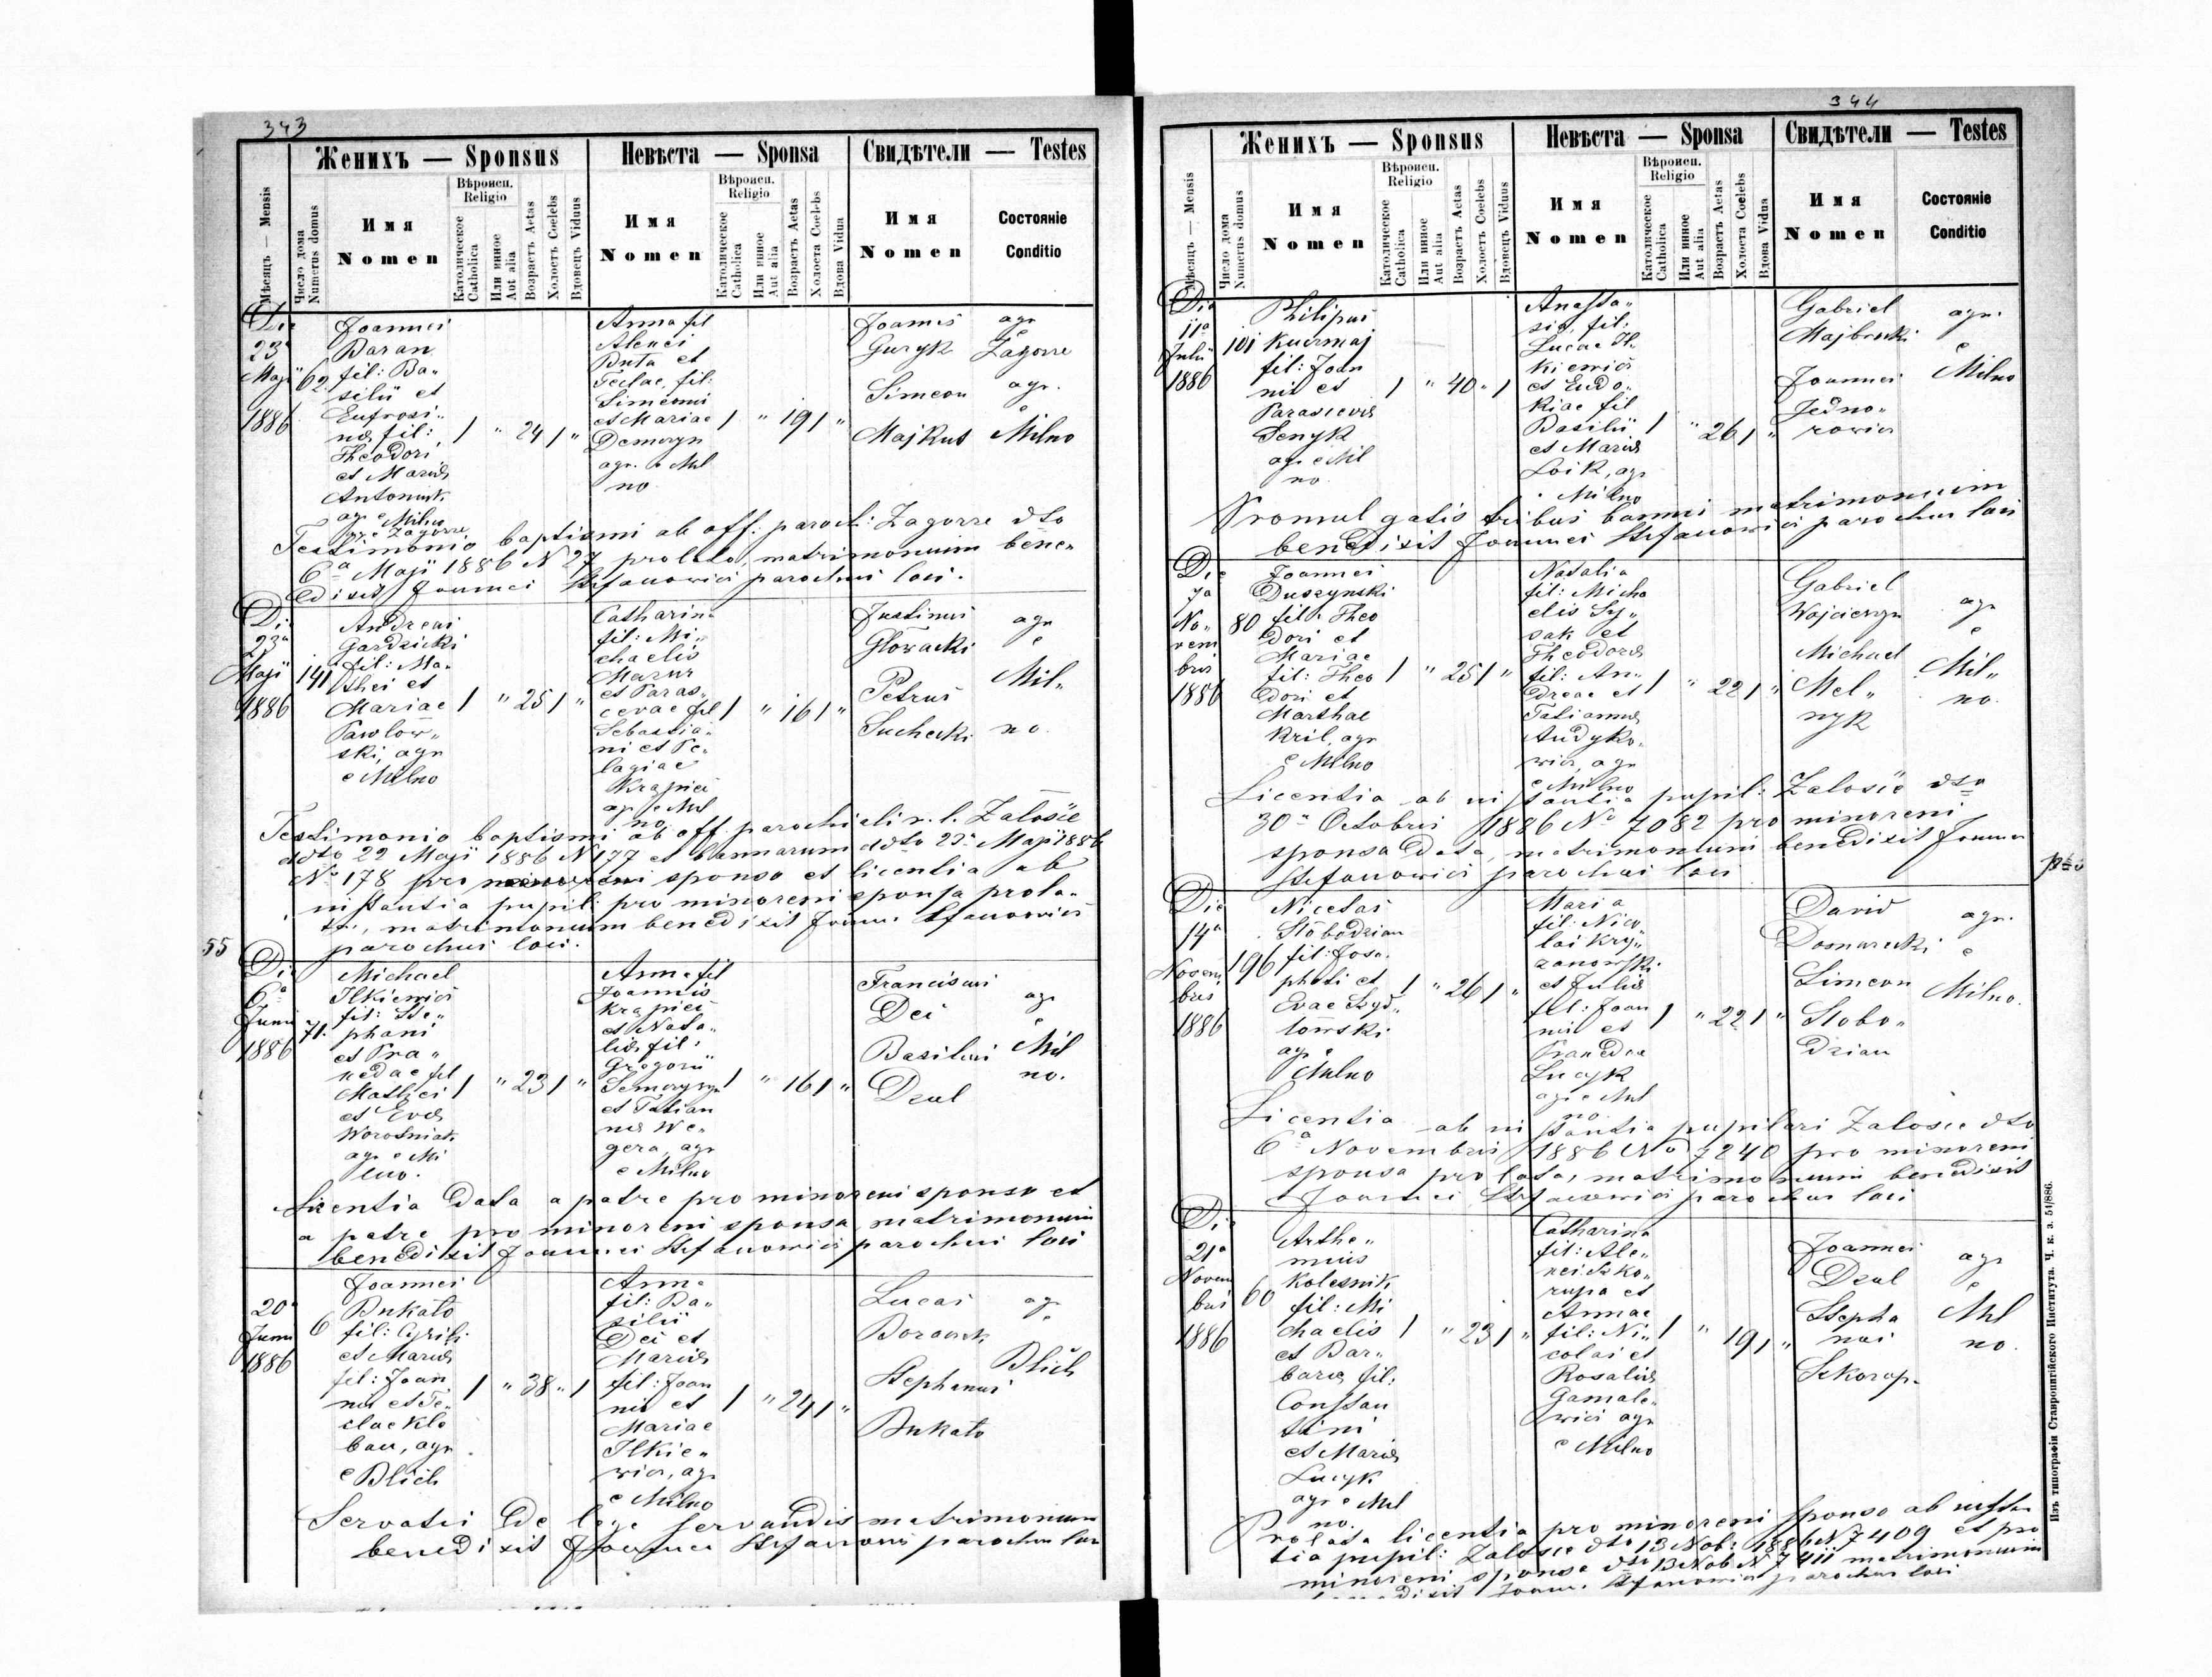 343
Женихъ — Sponsus
Невѣста — Sponsa
Свидѣтели — Testes
Мѣсяцъ — Mensis
Число дома
Numerus domus
Имя
Nomen
Вѣроисп.
Religio
Католическое
Catholica
Или инное
Aut alia
Возрастъ Aetas
Холостъ Coelebs
Вдовецъ Viduus
Имя
Nomen
Вѣроисп.
Religio
Католическое
Catholica
Или инное
Aut alia
Возрастъ Aetas
Холоста Coelebs
Вдова Vidua
Имя
Nomen
Состояніе
Conditio
Die
23a
Maji
1886
62
Joannes
Baran
fil: Ba-
silii et
Eufrosi-
nae fil:
Theodori
et Mariae
Antoniuk
agr. e Milno
agr. e Zagorze
1 " 24 1 "
Anna fil
Alexii
Buta et
Teclae, fil:
Simeonis
et Mariae
Demczyn
agr. e Mil
no
1 " 19 1 "
Joannes
Guryk
Simeon
Majkut
agr
e
Zagorze
agr.
e
Milno
Testimonio baptismi ab off: paroch: Zagorze dto
6a Maji 1886 N 27 prolato, matrimonium bene-
dixit Joannes Stefanowicz parochus loci.
Die
23a
Maji
1886
141
Andreas
Gardzicki
fil: Ma-
thei et
Mariae
Pawlow-
ski, agr
e Milno
1 " 25 1 "
Catharina
fil: Mi-
chaelis
Mazur
et Paras-
cevae fil
Sebastia-
ni et Pe-
lagiae
Krąpiec
agr e Mil
no
1 " 16 1 "
Justinus
Głowacki
Petrus
Suchecki
agr
e
Mil-
no.
Testimonio baptismi ab off. parochiali r. l. Założie
ddto 22 Maji 1886 N 177 et bannorum ddto 23a Maji 1886
No 178 pro sponso et licentia ab
instantia pupil: pro minoreni sponsa prola-
ta, matrimonium benedixit Joann. Stefanowicz
parochus loci.
55
Die
6a
Junii
1886
71.
Michael
Ilkiewicz
fil: Ste-
phani
et Pra-
xedae fil
Mathei
et Evae
Worobniak
agr e Mi
lno.
1 " 23 1 "
Anna fil
Joannis
Krąpiec
et Nata-
liae fil:
Gregorii
et Tatian
nae We-
gera, agr
e Milno
1 " 16 1 "
Franciscus
Dec
Basilius
Dzul
agr
e
Mil
no.
Licentia data a patre pro minoreni sponso et
a patre pro minoreni sponsa, matrimonium
benedixit Joannes Stefanowicz parochus loci
20a
Junii
1886
6
Joannes
Bukato
fil: Cyrili
et Mariae
fil: Joan
nis et Te-
clae Kle
ban, agr
e Blich
1 " 38 " 1
Anna
fil: Ba-
silii
Dec et
Mariae
fil: Joan
nis et
Mariae
Ilkie-
wicz, agr
e Milno
1 " 24 1 "
Lucas
Stephanus
Bukato
agr
e
Blich
Servatis de lege servandis matrimonium
benedixit Joannes Stefanowicz parochus loci
344
Женихъ — Sponsus
Невѣста — Sponsa
Свидѣтели — Testes
Мѣсяцъ — Mensis
Число дома
Numerus domus
Имя
Nomen
Вѣроисп.
Religio
Католическое
Catholica
Или инное
Aut alia
Возрастъ Aetas
Холостъ Coelebs
Вдовецъ Viduus
Имя
Nomen
Вѣроисп.
Religio
Католическое
Catholica
Или инное
Aut alia
Возрастъ Aetas
Холоста Coelebs
Вдова Vidua
Имя
Nomen
Состояніе
Conditio
Die
11a
Julii
1886
101
Philipus
Kuczmaj
fil: Joan
nis et
Parascevae
Senyk
agr e Mil
no
1 " 40 " 1
Anasta-
sia, fil:
Lucae Il-
kiewicz
et Eudo-
kiae fil
Basilii
et Mariae
Loik, agr
e Milno
1 " 26 1 "
Gabriel
Majbroski
Joannes
Jedno-
rowicz
agr.
e
Milno
Promulgatis tribus bannis matrimonium
benedixit Joannes Stefanowicz parochus loci
Die
7a
No-
vem
bris
1886
80
Joannes
Duszynski
fil: Theo
dori et
Mariae
fil: Theo
dori et
Marthae
Kril, agr
e Milno
1 " 25 1 "
Natalia
fil: Micha
elis Sy-
sak et
Theodorae
fil: An-
dreae et
Tatiannae
Andyko-
wicz, agr
e Milno
1 " 22 1 "
Gabriel
Wojcieszyn
Michael
Mel-
nyk
agr
e
Mil-
no.
Licentia ab instantia pupil: Założie dto
30a Octobris 1886 No 7082 pro minoreni
sponsa data, matrimonium benedixit Joannes
Stefanowicz parochus loci
Die
14a
Novem
bris
1886
196
Nicetas
Słobodzian
fil: Josa-
phati et
Evae Szyd-
łowski
agr e
Milno
1 " 26 1 "
Maria
fil: Nico-
lai Kry-
zanowski
et Juliae
fil: Joan
nis et
Praxedae
Lucyk
agr e Mil
no
1 " 22 1 "
David
Domarecki
Simeon
Słobo-
dzian
agr.
e
Milno.
Licentia ab instantia pupilari Założie dto
6a Novembris 1886 No 7240 pro minoreni
sponsa prolata, matrimonium benedixit
Joannes Stefanowicz parochus loci
Die
21a
Novem
bris
1886
60
Arthe-
mius
Kolesnik
fil: Mi
chaelis
et Bar-
barae fil:
Constan
tini
et Mariae
Lucyk
agr e Mil
no.
1 " 23 1 "
Catharina
fil: Ale-
xei Szko-
rupa et
Annae
fil: Ni-
colai et
Rosaliae
Gamale-
wicz agr
e Milno
1 " 19 1 "
Joannes
Dzul
Stepha
nus
Szkorup-
agr
e
Mil
no.
Prolata licentia pro minoreni sponso ab instan
tia pupil: Założie dto 13 Nob: 1886 N 7409 et pro
minoreni sponsa dto 13 Nob N 7411 matrimonium
benedixit Joann. Stefanowicz parochus loci
Изъ типографіи Ставропигійского Института. Ч. к. з. 51/886.